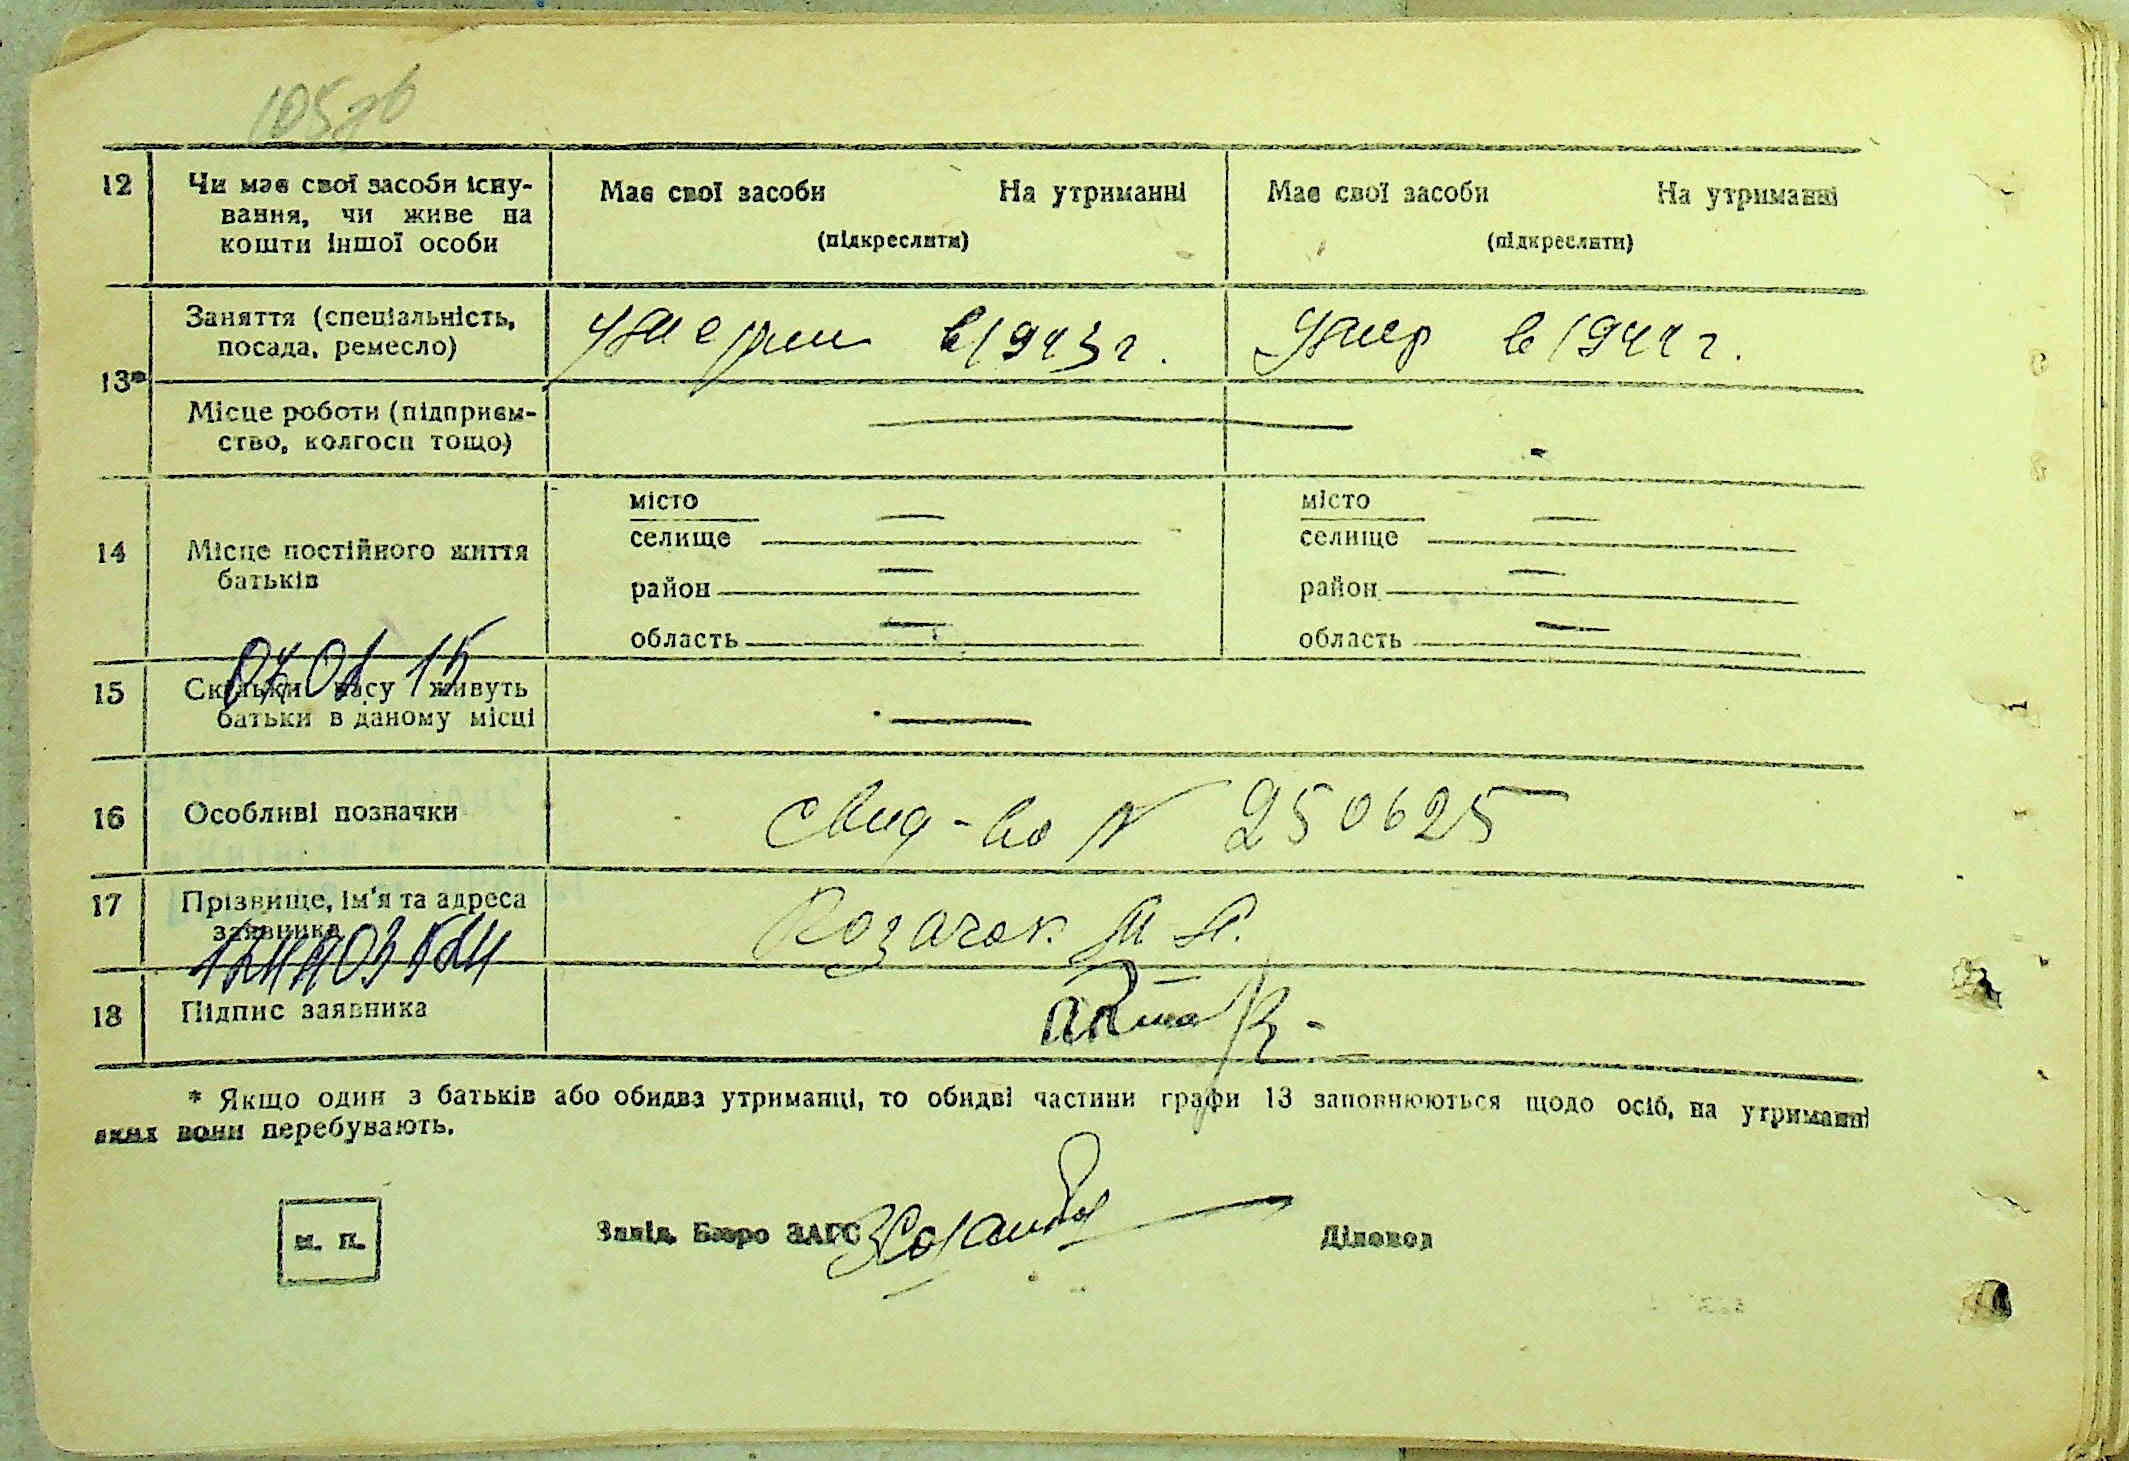 105зв
12 Чи має свої засоби існу-
вання, чи живе на
кошти іншої особи
Має свої засоби На утриманні
(підкреслити)
Має свої засоби На утриманні
(підкреслити)
13*
Заняття (спеціальність,
посада, ремесло)
в 1943 г.
Умер в 1944 г.
Місце роботи (підприєм-
ство, колгосп тощо)
—
14 Місце постійного життя
батьків
місто
селище —
район —
область —
місто
селище —
район —
область —
15 Скільки часу живуть
батьки в даному місці
—
16 Особливі позначки
Свид-во N 250625
17 Прізвище, ім'я та адреса
заявника
Козачок М. А.
18 Підпис заявника
* Якщо один з батьків або обидва утриманці, то обидві частини графи 13 заповнюються щодо осіб, на утриманні
яких вони перебувають.
м. п.
Завід. Бюро ЗАГС
Діловод